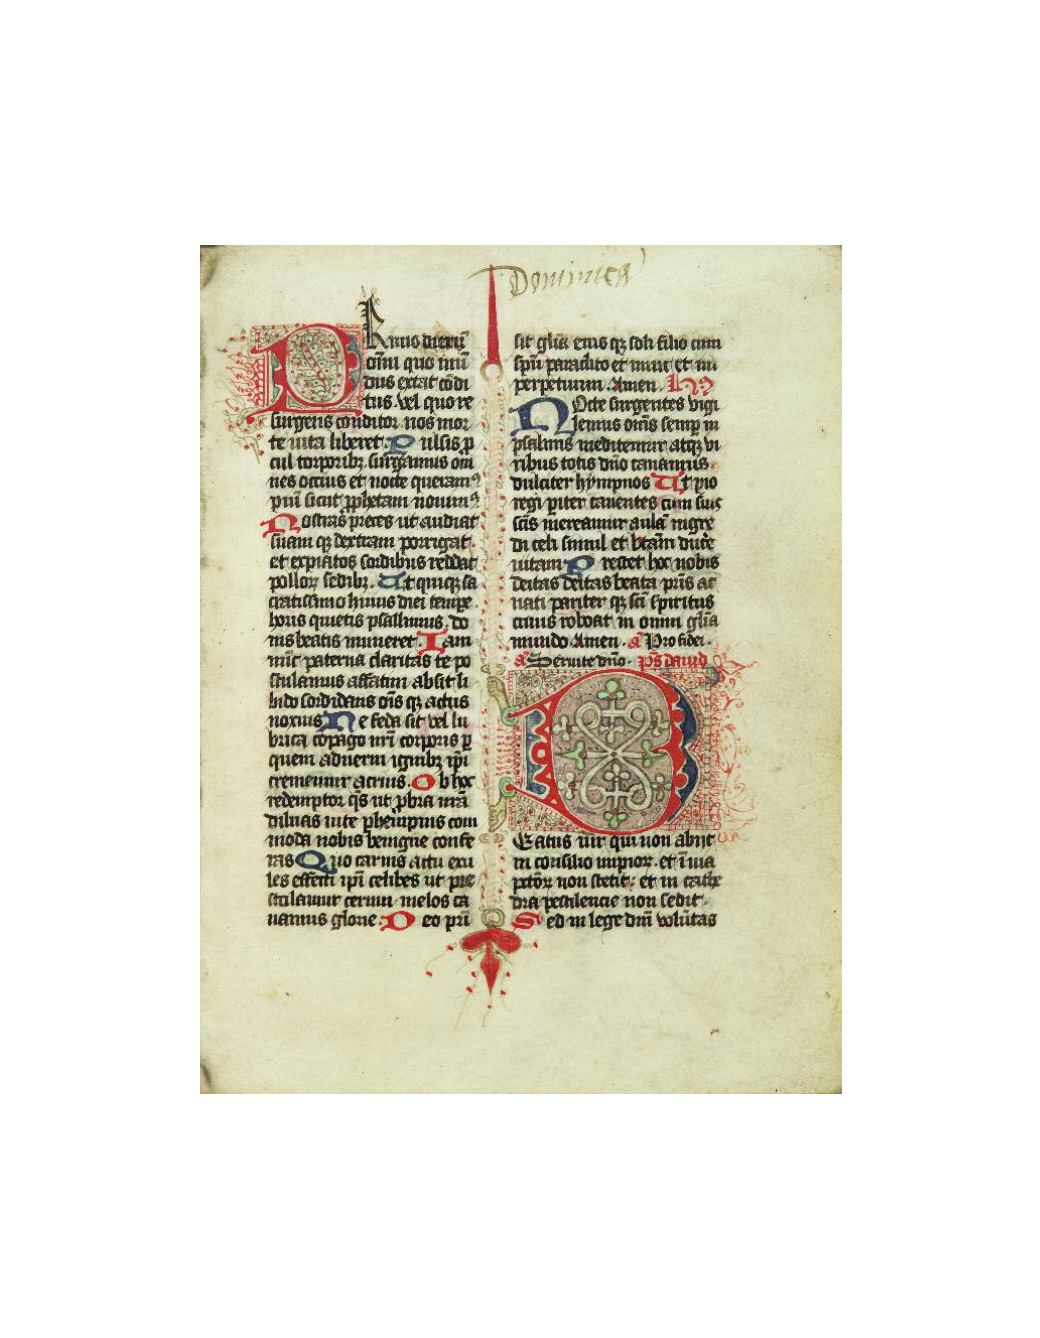 Dominica
PRimo dierũ
om̃i quo mũ
dus extat cõdi
tus. vel quo re
surgens conditor nos mor
te uita liberet. Pulsis ꝑ
cul torporibꝫ surgamus om̃
nes occius et nocte queramꝰ
piũ sicut ꝓphetam nouimꝰ
Nostras preces ut audiat
suam qꝫ dextram porrigat
et expiatos sordibus reddat
polloꝝ sedibꝫ. Ut quiqꝫ sa
cratissimo huius diei tempe
horis quietis psallimus. do
nis beatis muneret. Iam
nũc paterna claritas te po
stulamus affatim absit li
bido sordidans om̃s qꝫ actus
noxius Ne feda sit vel lu
brica cõpago nr̃i corporis ꝑ
quem auerni ignibꝫ ip̃i
crememur acrius. Ob hoc
redemptor q̃s ut ꝓbra nr̃a
diluas uite phẽnpnis com
moda nobis benigne confe
ras Quo carnis actu exu
les effecti ip̃i celibes ut pre
stulamur cernui melos ca
namus glorie. Deo pr̃i
sit glia eius qꝫ soli filio cum
sp̃u paraclito et nunc et in
perpetuum. Amen. Hȳ
NOcte surgentes vigi
lemus om̃s semꝑ in
psalmis meditemur atqꝫ vi
ribus totis dño canamus
dulciter hympnos Ut pio
regi ꝑiter canentes cum suis
sc̃is mereamur aulã ingre
di celi simul et btãm duce
uitam Prestet hoc nobis
deitas deitas beata pr̃is ac
nati pariter qꝫ sc̃i spiritus
cuius roboat in omni glia
mundo Amen. a Pro fidei.
a Seruite dño. p̃s dauid
BEatus uir qui non abijt
in consilio impioꝝ. et ĩ uia
pctõꝝ non stetit: et in cathe
dra pestilencie non sedit.
Sed in lege dm̃i volũtas